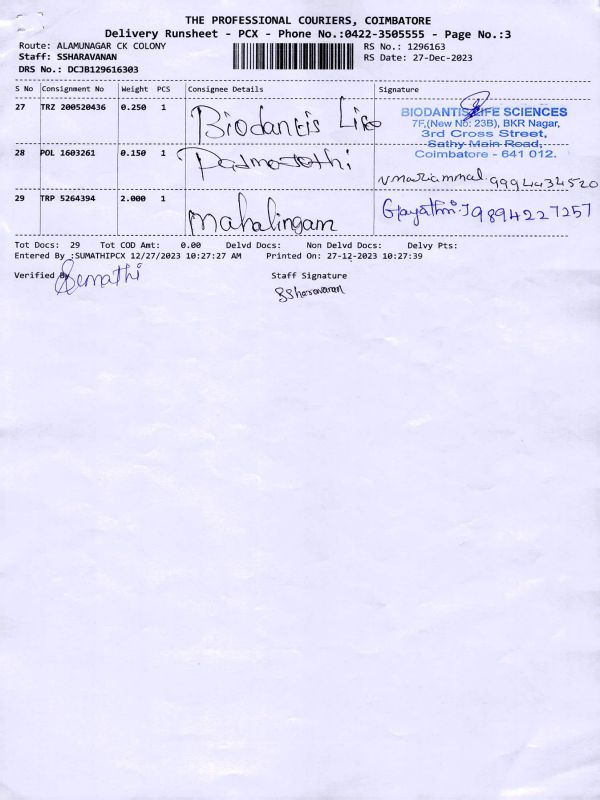 THE PROFESSIONAL COURIERS, COIMBATORE
Delivery Runsheet - PCX - Phone No.:0422-3505555 - Page No.:3
Route: ALAMUNAGAR CK COLONY
RS No.: 1296163
Staff: SSHARAVANAN
RS Date: 27-Dec-2023
DRS No.: DCJB129616303
S No Consignment No Weight PCS Consignee Details Signature
27 TRZ 200520436 0.250 1 Biodantis Life
BIODANTIS LIFE SCIENCES
7F,(New No: 23B), BKR Nagar,
3rd Cross Street,
Sathy Main Road,
Coimbatore - 641 012.
28 POL 1603261 0.150 1
V mariammal. 9994434520
29 TRP 5264394 2.000 1 Mahalingam
Gayathri.J 9894227257
Tot Docs: 29 Tot COD Amt: 0.00 Delvd Docs: Non Delvd Docs: Delvy Pts:
Entered By :SUMATHIPCX 12/27/2023 10:27:27 AM Printed On: 27-12-2023 10:27:39
Verified By Staff Signature
SSharavanan